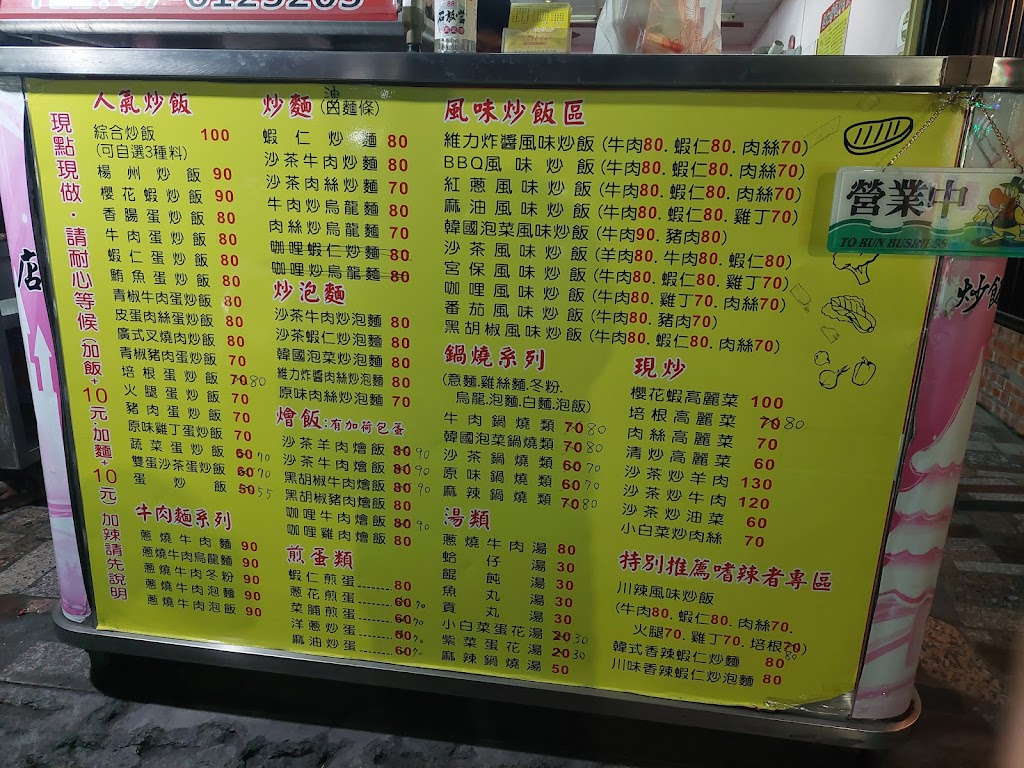 0125205
店
現點現做．請耐心等候(加飯+10元.加麵+10元)加辣請先說明
人氣炒飯
綜合炒飯 100
(可自選3種料)
楊州炒飯 90
櫻花蝦炒飯 90
香腸蛋炒飯 80
牛肉蛋炒飯 80
蝦仁蛋炒飯 80
鮪魚蛋炒飯 80
青椒牛肉蛋炒飯 80
皮蛋肉絲蛋炒飯 80
廣式叉燒肉炒飯 80
青椒豬肉蛋炒飯 70
培根蛋炒飯 70 80
火腿蛋炒飯 70
豬肉蛋炒飯 70
原味雞丁蛋炒飯 70
蔬菜蛋炒飯 60 70
雙蛋沙茶蛋炒飯 60 70
蛋炒飯 50 55
牛肉麵系列
蔥燒牛肉麵 90
蔥燒牛肉烏龍麵 90
蔥燒牛肉冬粉 90
蔥燒牛肉泡麵 90
蔥燒牛肉泡飯 90
炒麵(油麵條)
蝦仁炒麵 80
沙茶牛肉炒麵 80
沙茶肉絲炒麵 70
牛肉炒烏龍麵 80
肉絲炒烏龍麵 70
咖哩蝦仁炒麵 80
咖哩炒烏龍麵 80
炒泡麵
沙茶牛肉炒泡麵 80
沙茶蝦仁炒泡麵 80
韓國泡菜炒泡麵 80
維力炸醬肉絲炒泡麵 80
原味肉絲炒泡麵 70
燴飯:有加荷包蛋
沙茶羊肉燴飯 80 90
沙茶牛肉燴飯 80 90
黑胡椒牛肉燴飯 80 90
黑胡椒豬肉燴飯 80
咖哩牛肉燴飯 80 90
咖哩雞肉燴飯 80
煎蛋類
蝦仁煎蛋 80
蔥花煎蛋 60 70
菜脯煎蛋 60 70
洋蔥炒蛋 60 70
麻油炒蛋 60 70
風味炒飯區
維力炸醬風味炒飯(牛肉80. 蝦仁80. 肉絲70)
BBQ風味炒飯(牛肉80. 蝦仁80. 肉絲70)
紅蔥風味炒飯(牛肉80. 蝦仁80. 肉絲70)
麻油風味炒飯(牛肉80. 蝦仁80. 雞丁70)
韓國泡菜風味炒飯(牛肉90. 豬肉80)
沙茶風味炒飯(羊肉80. 牛肉80. 蝦仁80)
宮保風味炒飯(牛肉80. 蝦仁80. 雞丁70)
咖哩風味炒飯(牛肉80. 雞丁70. 肉絲70)
番茄風味炒飯(牛肉80. 豬肉70)
黑胡椒風味炒飯(牛肉80. 蝦仁80. 肉絲70)
鍋燒系列
(意麵.雞絲麵.冬粉.
烏龍.泡麵.白麵.泡飯)
牛肉鍋燒類 70 80
韓國泡菜鍋燒類 70 80
沙茶鍋燒類 60 70
原味鍋燒類 60 70
麻辣鍋燒類 70 80
湯類
蔥燒牛肉湯 80
蛤仔湯 30
餛飩湯 30
魚丸湯 30
貢丸湯 30
小白菜蛋花湯 20 30
紫菜蛋花湯 20 30
麻辣鍋燒湯 50
現炒
櫻花蝦高麗菜 100
培根高麗菜 70 80
肉絲高麗菜 70
清炒高麗菜 60
沙茶炒羊肉 130
沙茶炒牛肉 120
沙茶炒油菜 60
小白菜炒肉絲 70
特別推薦嗜辣者專區
川辣風味炒飯
(牛肉80. 蝦仁80. 肉絲70.
火腿70. 雞丁70. 培根70) 80
韓式香辣蝦仁炒麵 80
川味香辣蝦仁炒泡麵 80
營業中
TO RUN BUSINESS
炒飯